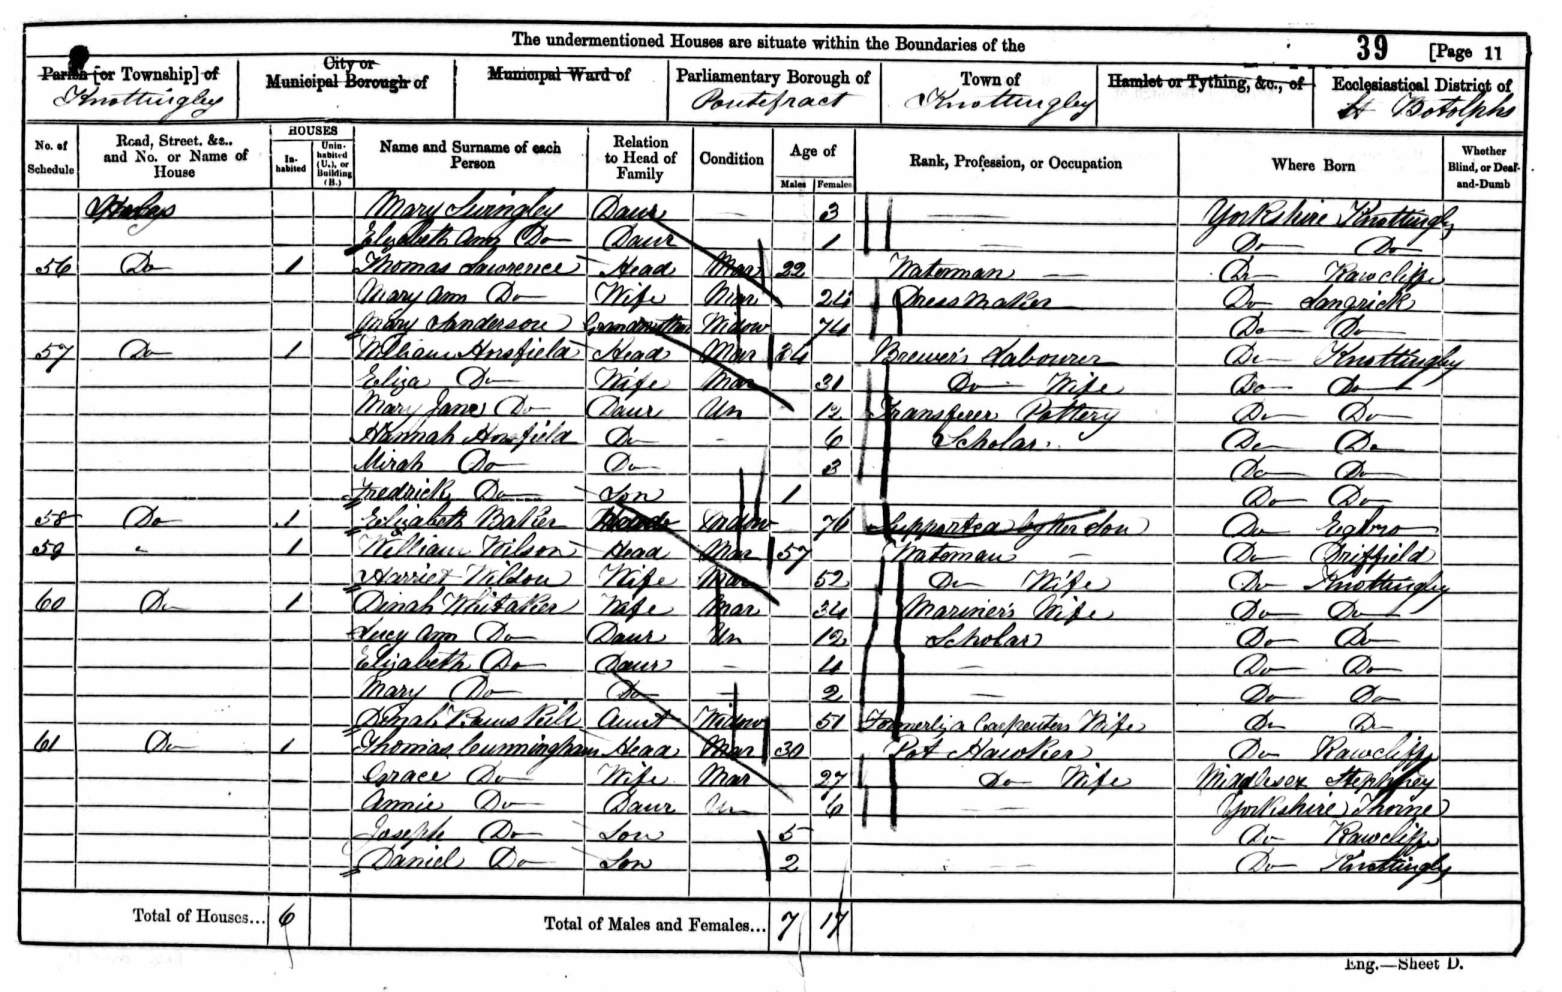 The undermentioned Houses are situate within the Boundaries of the 39 [Page 11
Parish [or Township] of City or Municipal Borough of Municipal Ward of Parliamentary Borough of Town of Hamlet or Tything, &c., of Ecclesiastical District of
Knottingley Pontefract Knottingley St Botolphs
No. of Schedule Road, Street, &c., and No. or Name of House HOUSES Inhabited Uninhabited (U.), or Building (B.) Name and Surname of each Person Relation to Head of Family Condition Age of Males Females Rank, Profession, or Occupation Where Born Whether Blind, or Deaf-and-Dumb
Mary Swingley Daur — 3 — Yorkshire Knottingley
Elizabeth Ann Do Daur 1 — Do Do
56 Do 1 Thomas Lawrence Head Mar 22 Waterman — Do Rawcliffe
Mary Ann Do Wife Mar 24 Dress Maker Do Langrick
Mary Sanderson Grandmother Widow 74 Do Do
57 Do 1 William Horsfield Head Mar 34 Brewer's Labourer Do Knottingley
Eliza Do Wife Mar 31 Do Wife Do Do
Mary Jane Do Daur Un 12 Transferer Pottery Do Do
Hannah Horsfield Do - 6 Scholar Do Do
Mirah Do Do 3 Do Do
Fredrick Do Son 1 Do Do
58 Do 1 Elizabeth Baker Widow 76 Supported by her Son Do Egbro
59 " 1 William Wilson Head Mar 57 Waterman — Do Driffield
Harriet Wilson Wife Mar 52 Do Wife Do Knottingley
60 Do 1 Dinah Whitaker Wife Mar 34 Mariner's Wife Do Do
Lucy Ann Do Daur Un 12 Scholar Do Do
Elizabeth Do Daur — 4 — Do Do
Mary Do Do — 2 — Do Do
Dinah Aunt Widow 51 Formerly a Carpenters Wife Do Do
61 Do 1 Thomas Cunningham Head Mar 30 Pot Hawker Do Rawcliffe
Grace Do Wife Mar 27 Do Wife Middlesex Stephney
Annie Do Daur Un 6 — Yorkshire Thorne
Joseph Do Son 5 Do Rawcliffe
Daniel Do Son 2 — Do Knottingley
Total of Houses... 6 Total of Males and Females... 7 17
Eng.—Sheet D.